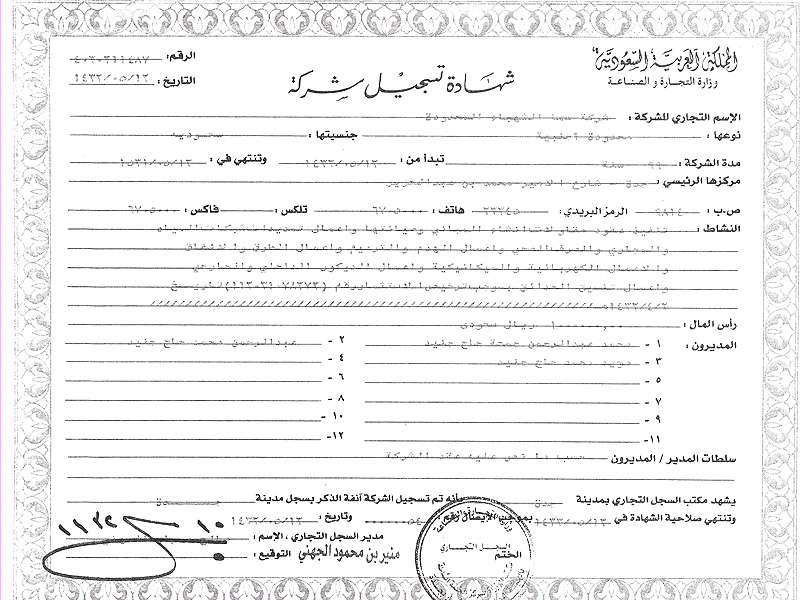 المملكة العربية السعودية
وزارة التجارة و الصناعة
شهادة تسجيل شركة
الرقم: ٤٠٣٠٢١١٤٨٧
التاريخ: ١٤٣٢/٠٥/١٢
الإسم التجاري للشركة : شركة سما الشهباء المحدودة
نوعها : محدودة أجنبية جنسيتها : سعودية
مدة الشركة : ٩٩ سنة تبدأ من : ١٤٣٢/٠٥/١٢ وتنتهي في : ١٥٣١/٠٥/١٢
مركزها الرئيسي : جدة - شارع الامير محمد بن عبدالعزيز
ص.ب : ٩٨١٤ الرمز البريدي: ٢٣٣٤٥ هاتف : ٦٧٠٥٠٠٠ تلكس : فاكس : ٦٧٠٥٠٠٠
النشاط : تنفيذ عقود مقاولات انشاء المباني وصيانتها واعمال تمديدات شبكات المياه
والمجاري والصرف الصحي واعمال الهدم والترميم واعمال الطرق والانفاق
والاعمال الكهربائية والميكانيكية واعمال الديكور الداخلي والخارجي
واعمال تنسيق الحدائق بموجب ترخيص الاستثمار رقم (١١٢٠٣١٠٧٣٧٣) تاريخ
١٤٣٢/٤/٢هـ
رأس المال : ١٠٠٠٠٠٠,٠٠ ريال سعودى
المديرون : ١ - محمد عبدالرحمن جمعة حاج جنيد ٢ - عبدالرحمن محمد حاج جنيد
٣ - محمد حاج جنيد ٤ -
٥ - ٦ -
٧ - ٨ -
٩ - ١٠ -
١١- ١٢-
سلطات المدير / المديرون حسب ما نص عليه عقد الشركة
يشهد مكتب السجل التجاري بمدينة جدة بأنه تم تسجيل الشركة آنفة الذكر بسجل مدينة جدة
وتنتهي صلاحية الشهادة في ١٤٣٣/٠٥/١٢ بموجب الإيصال رقم وتاريخ : ١٤٣٢/٠٥/١٢
مدير السجل التجاري ، الإسم :
الختم
السجل التجاري
التوقيع : منير بن محمود الجهني